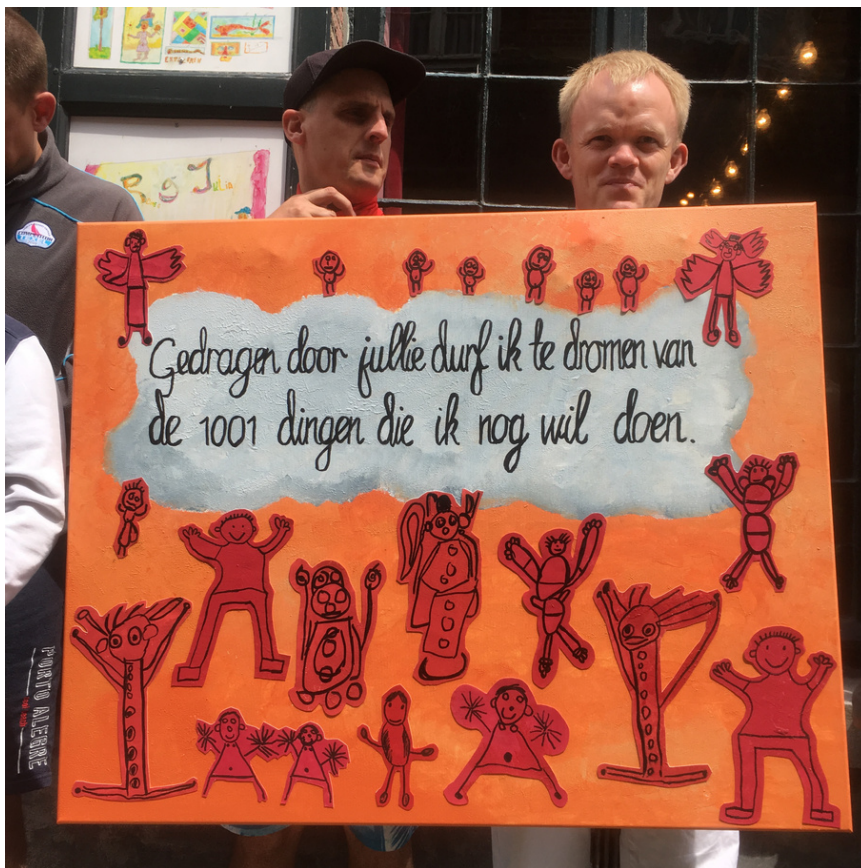 Gedragen door jullie durf ik te dromen van
de 1001 dingen die ik nog wil doen.
PORTO ALEGRE